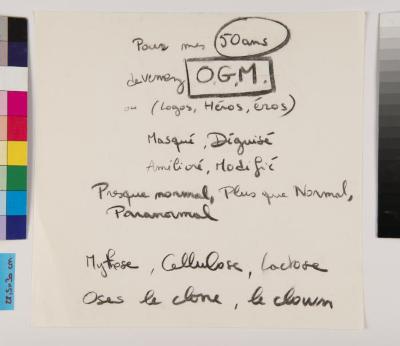 Pour mes 50 ans
devenez O.G.M.
ou (Logos, Héros, éros)
Masqué, Déguisé
Amélioré, Modifié
Presque normal, Plus que Normal,
Paranormal
Mythose, Cellulose, Lactose
Oses le clone, le clown
22,5x20 cm